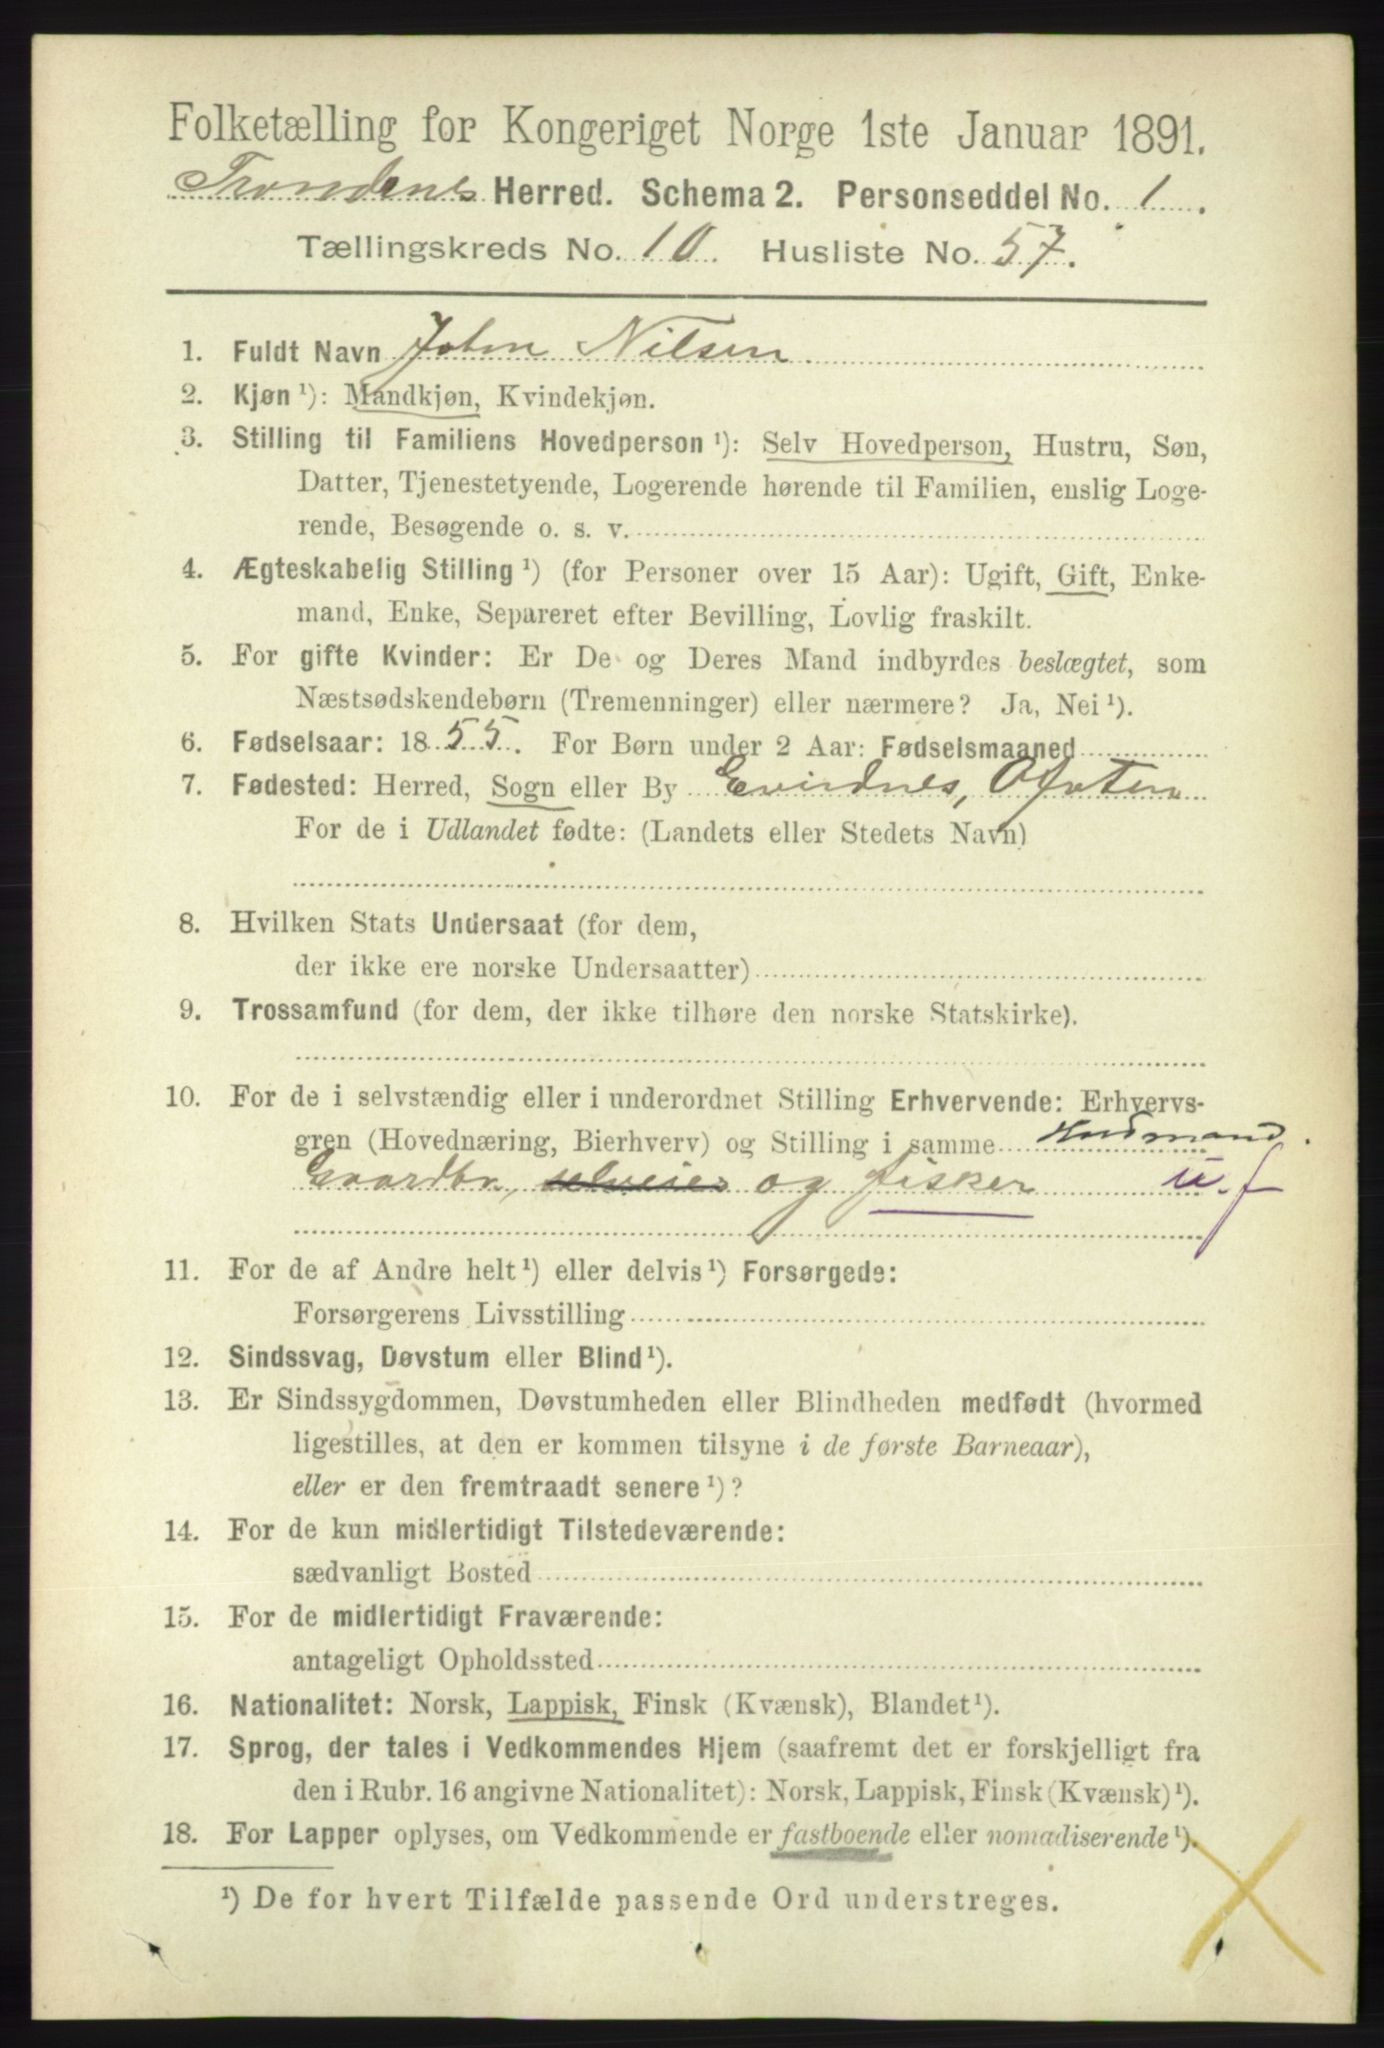 Folketælling for Kongeriget Norge 1ste Januar 1891.
Trondenes Herred. Schema 2. Personseddel No. 1.
Tællingskreds No. 10. Husliste No. 57.
1. Fuldt Navn John Nilsen
2. Kjøn¹): Mandkjøn, Kvindekjøn.
3. Stilling til Familiens Hovedperson¹): Selv Hovedperson, Hustru, Søn,
Datter, Tjenestetyende, Logerende hørende til Familien, enslig Loge-
rende, Besøgende o. s. v.
4. Ægteskabelig Stilling¹) (for Personer over 15 Aar): Ugift, Gift, Enke-
mand, Enke, Separeret efter Bevilling, Lovlig fraskilt.
5. For gifte Kvinder: Er De og Deres Mand indbyrdes beslægtet, som
Næstsødskendebørn (Tremenninger) eller nærmere? Ja, Nei¹).
6. Fødselsaar: 1855. For Børn under 2 Aar: Fødselsmaaned
7. Fødested: Herred, Sogn eller By Evindnes, Ofoten
For de i Udlandet fødte: (Landets eller Stedets Navn)
8. Hvilken Stats Undersaat (for dem,
der ikke ere norske Undersaatter)
9. Trossamfund (for dem, der ikke tilhøre den norske Statskirke).
10. For de i selvstændig eller i underordnet Stilling Erhvervende: Erhvervs-
gren (Hovednæring, Bierhverv) og Stilling i samme Husmand.
Gaardbr, selveier og fisker u.f
11. For de af Andre helt¹) eller delvis¹) Forsørgede:
Forsørgerens Livsstilling
12. Sindssvag, Døvstum eller Blind¹).
13. Er Sindssygdommen, Døvstumheden eller Blindheden medfødt (hvormed
ligestilles, at den er kommen tilsyne i de første Barneaar),
eller er den fremtraadt senere¹)?
14. For de kun midlertidigt Tilstedeværende:
sædvanligt Bosted
15. For de midlertidigt Fraværende:
antageligt Opholdssted
16. Nationalitet: Norsk, Lappisk, Finsk (Kvænsk), Blandet¹).
17. Sprog, der tales i Vedkommendes Hjem (saafremt det er forskjelligt fra
den i Rubr. 16 angivne Nationalitet): Norsk, Lappisk, Finsk (Kvænsk)¹).
18. For Lapper oplyses, om Vedkommende er fastboende eller nomadiserende¹).
¹) De for hvert Tilfælde passende Ord understreges.